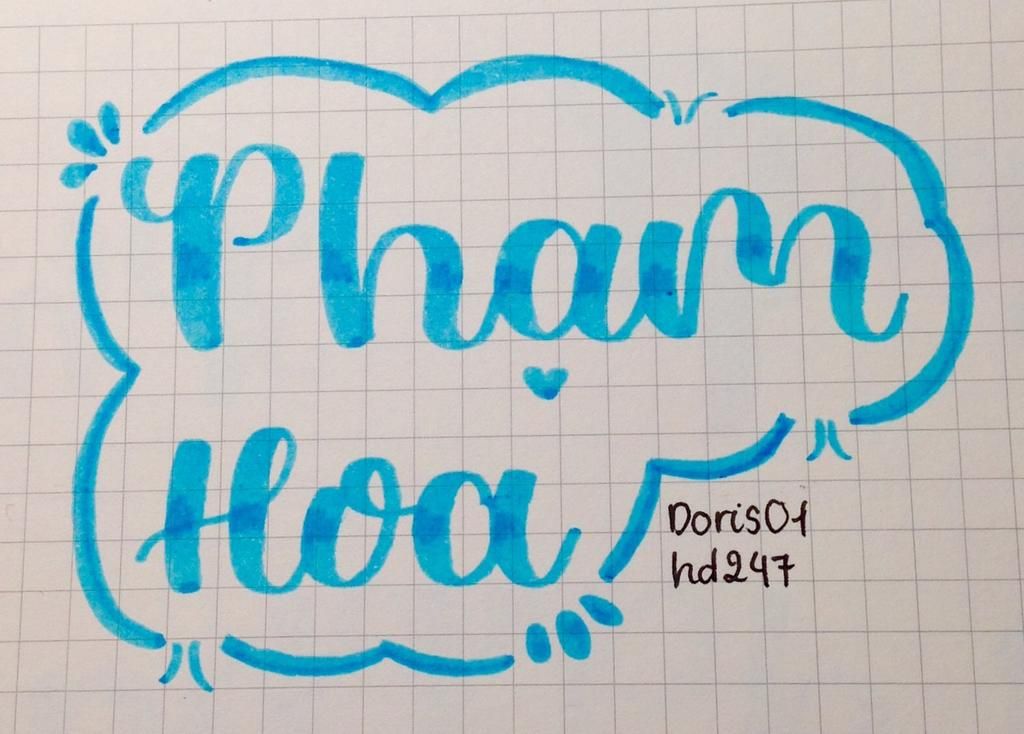 Pham
Hoa
Doris01
hd247